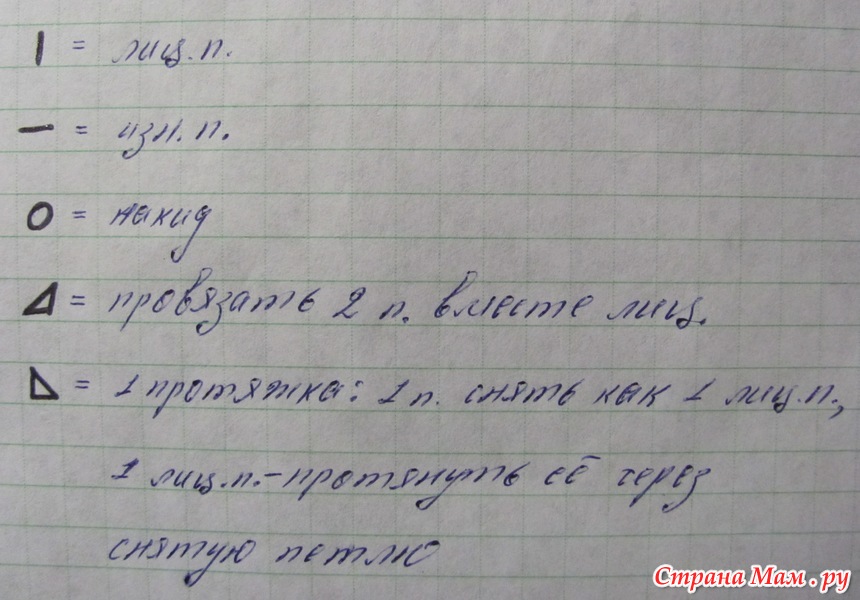 | = лиц.п.
— = изн.п.
O = накид
◿ = провязать 2 п. вместе лиц.
◺ = 1 протяжка: 1 п. снять как 1 лиц.п.,
1 лиц.п.-протянуть её через
снятую петлю
Страна Мам.ру